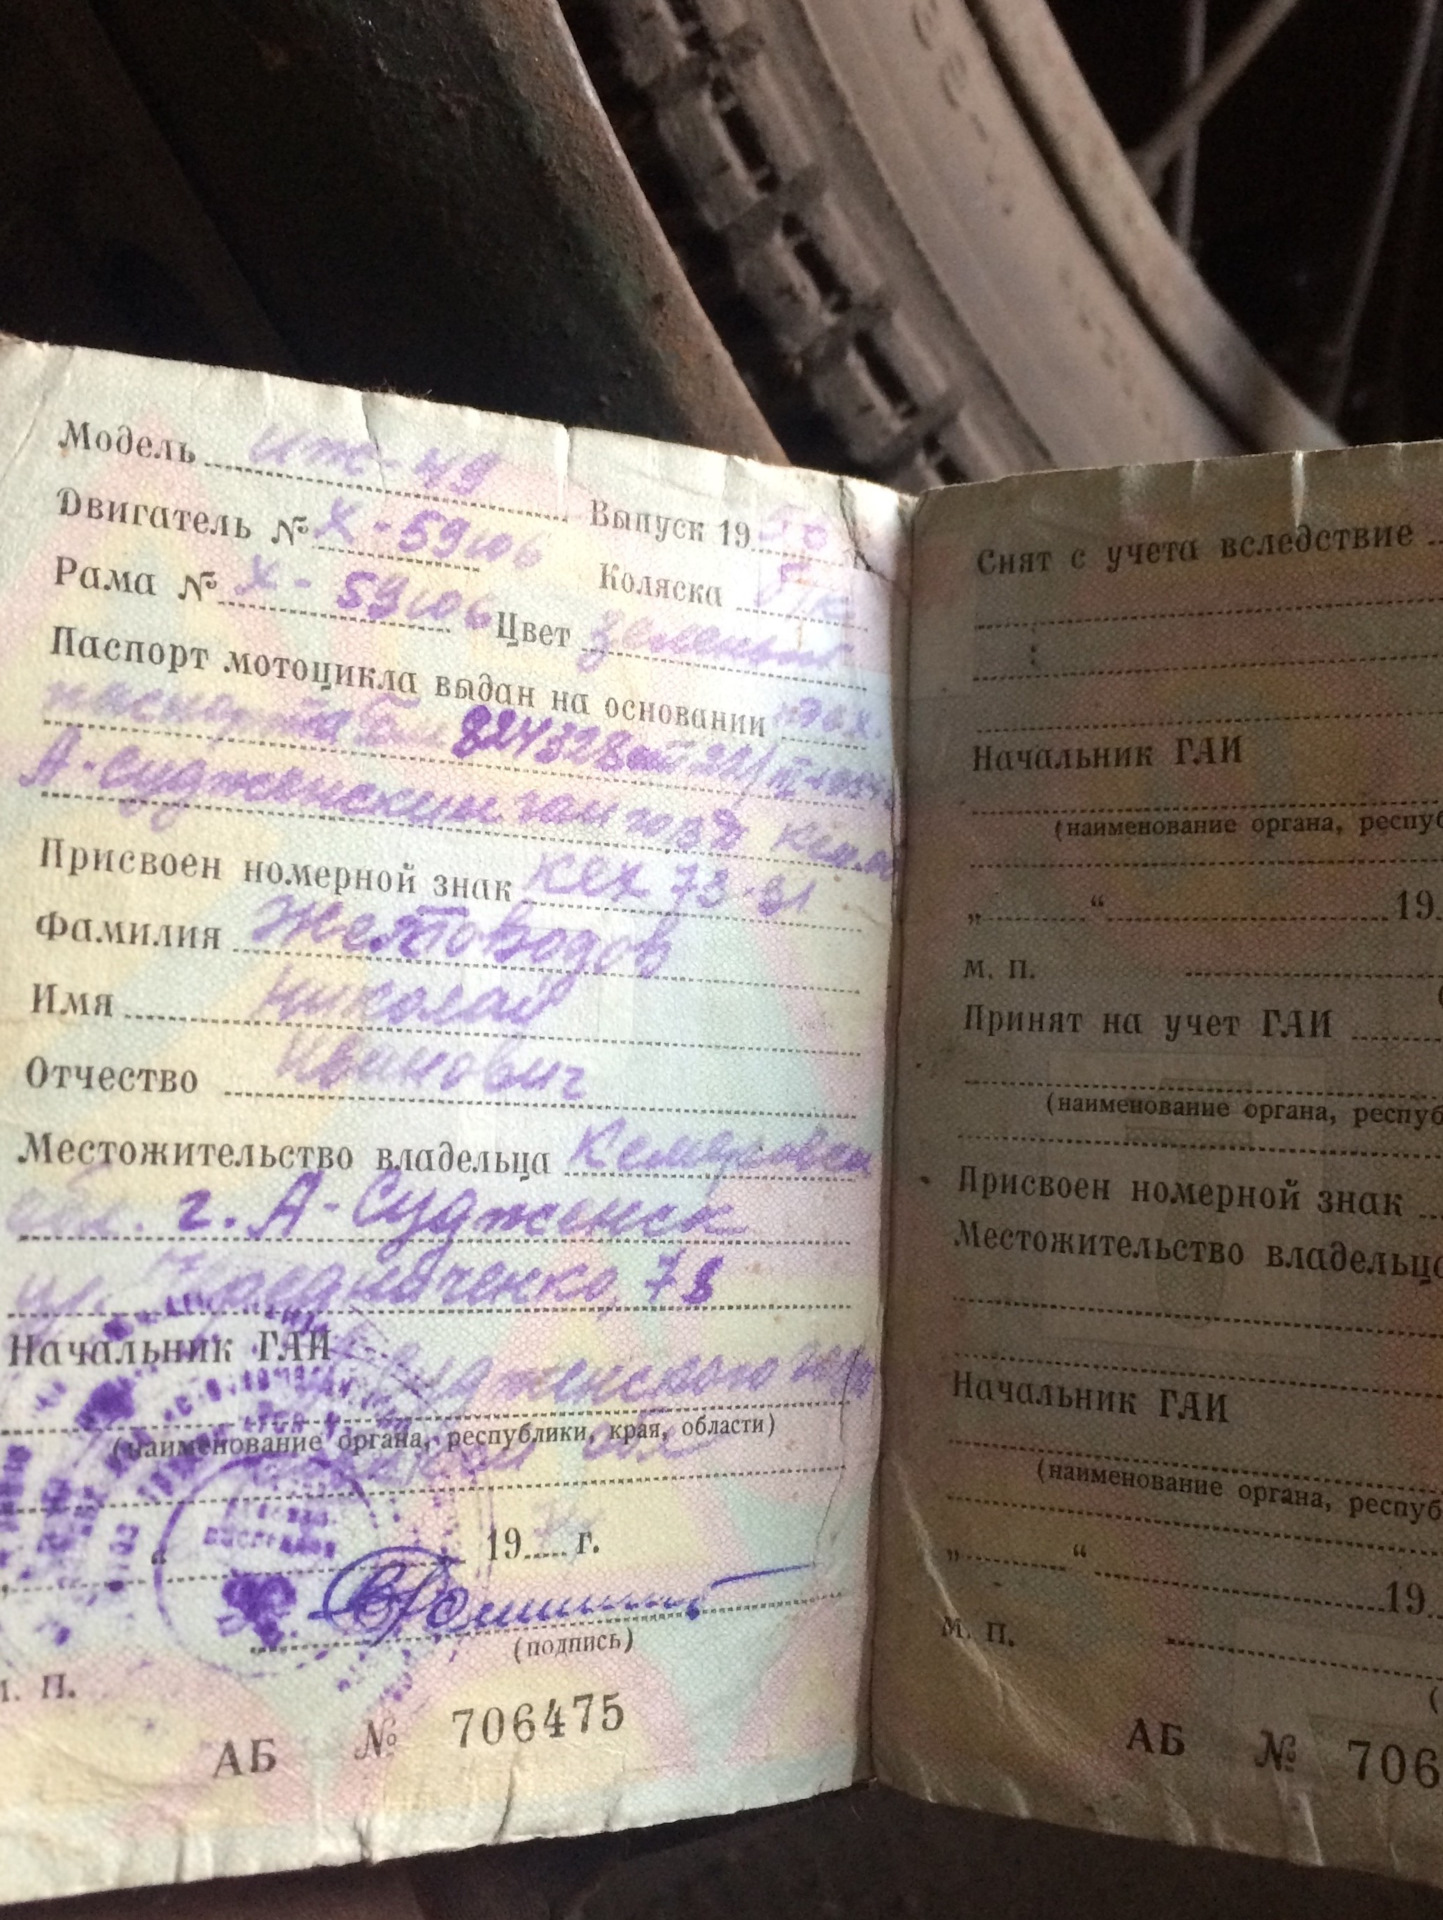 Модель иж-49
Выпуск 1956 г.
Двигатель № Х-59106
Коляска
Рама № Х-59106 Цвет зеленый
Паспорт мотоцикла выдан на основании тех.
паспорта 824328 от
А-Судженским гаи говд Кемер
Присвоен номерной знак кех 73-31
Фамилия Желтоводов
Имя Николай
Отчество Иванович
Местожительство владельца Кемеровск
обл. г. А-Судженск
ул. 78
Начальник ГАИ Судженского
(наименование органа, республики, края, области)
обл
19 г.
(подпись)
М. П.
АБ № 706475
Снят с учета вследствие
Начальник ГАИ
(наименование органа, респуб
„ “ 19
М. П.
Принят на учет ГАИ
(наименование органа, респуб
Присвоен номерной знак
Местожительство владельца
Начальник ГАИ
(наименование органа, респуб
„ “ 19
М. П.
(
АБ № 706